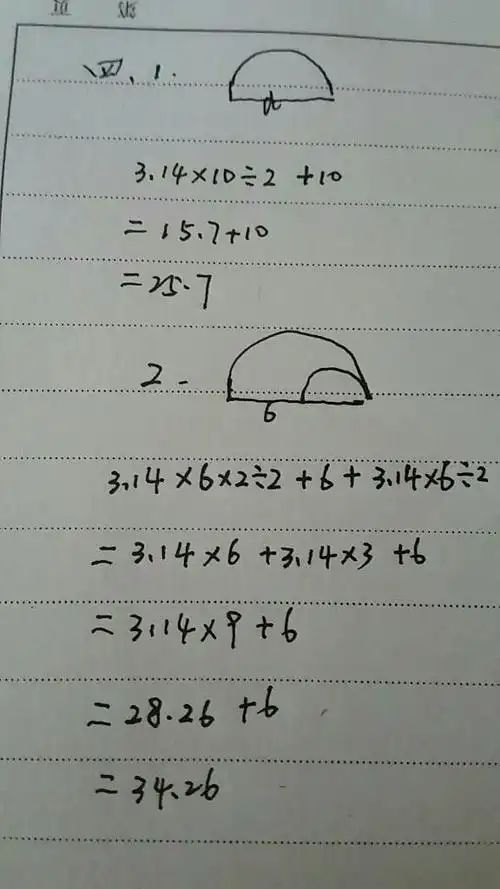 四、1.
d
3.14×10÷2 +10
=15.7+10
=25.7
2-
6
3.14×6×2÷2+6+3.14×6÷2
=3.14×6+3.14×3+6
=3.14×9+6
=28.26+6
=34.26